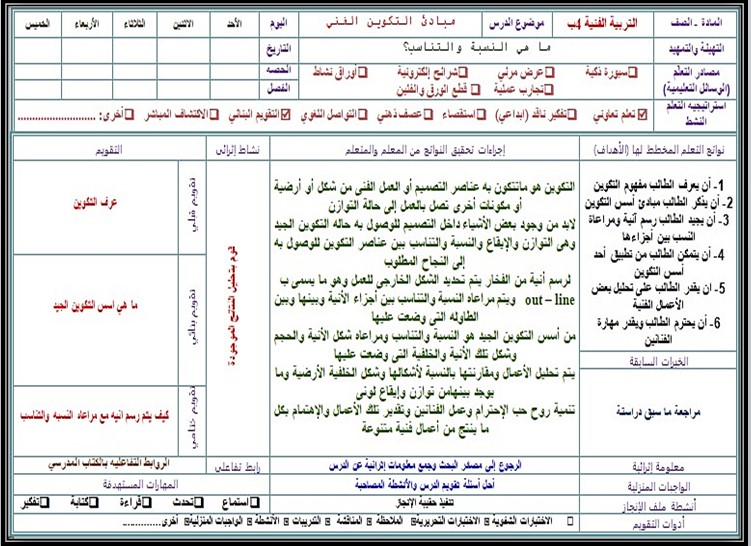 المادة - الصف
التربية الفنية 4ب
موضوع الدرس
مبادئ التكوين الفني
اليوم
الأحد
الاثنين
الثلاثاء
الأربعاء
الخميس
التهيئة والتمهيد
ما هي النسبة والتناسب؟
التاريخ
مصادر التعلم
(الوسائل التعليمية)
❑سبورة ذكية ❑عرض مرئي ❑شرائح إلكترونية ❑أوراق نشاط
❑تجارب عملية ❑ قطع الورق والفلين
الحصه
الفصل
استراتيجيه التعلم
النشط
☑تعلم تعاوني ❑تفكير ناقد (ابداعي) ❑استقصاء ❑عصف ذهني ❑التواصل اللغوي ☑التقويم البنائي ❑الاكتشاف المباشر ❑أخرى: ............................
نواتج التعلم المخطط لها (الأهداف)
إجراءات تحقيق النواتج من المعلم والمتعلم
نشاط إثرائي
التقويم
1- أن يعرف الطالب مفهوم التكوين
2- أن يذكر الطالب مبادئ أسس التكوين
3- أن يجيد الطالب رسم آنية ومراعاة
النسب بين أجزءها
4- أن يتمكن الطالب من تطبيق أحد
أسس التكوين
5- ان يقدر الطالب على تحليل بعض
الأعمال الفنية
6- أن يحترم الطالب ويقدر مهارة
الفنانين
الخبرات السابقة
مراجعة ما سبق دراستة
التكوين هو ماتتكون به عناصر التصميم أو العمل الفنى من شكل أو أرضية
أو مكونات أخرى تصل بالعمل إلى حالة التوازن
لابد من وجود بعض الأشياء داخل التصميم للوصول به حاله التكوين الجيد
وهى التوازن والإيقاع والنسبة والتناسب بين عناصر التكوين للوصول به
إلى النجاح المطلوب
لرسم أنية من الفخار يتم تحديد الشكل الخارجي للعمل وهو ما يسمى ب
out – line ويتم مراعاه النسبة والتناسب بين أجزاء الأنية وبينها وبين
الطاوله التى وضعت عليها
من أسس التكوين الجيد هو النسبة والتناسب ومراعاه شكل الأنية والحجم
وشكل تلك الأنية والخلفية التى وضعت عليها
يتم تحليل الأعمال ومقارنتها بالنسبة لأشكالها وشكل الخلفية الأرضية وما
يوجد بينهامن توازن وإيقاع لونى
تنمية روح حب الإحترام وعمل الفنانين وتقدير تلك الأعمال والإهتمام بكل
ما ينتج من أعمال فنية متنوعة
قوم بتحليل النتائج الموجودة
تقويم قبلي
عرف التكوين
تقويم بنائي
ما هي اسس التكوين الجيد
تقويم ختامي
كيف يتم رسم انيه مع مراعاه النسبه والتناسب
معلومة إثرائية
الرجوع إلى مصادر البحث وجمع معلومات إثرائية عن الدرس
رابط تفاعلى
الروابط التفاعليه بالكتاب المدرسي
الواجبات المنزلية
أحل أسئلة تقويم الدرس والأنشطة المصاحبة
المهارات المستهدفة
أنشطة ملف الإنجاز
تنفيذ حقيبة الإنجاز
❑استماع ❑تحدث ❑قراءة ❑كتابة ❑تفكير
أدوات التقويم
❑ الاختبارات الشفوية الاختبارات التحريرية الملاحظة المناقشة التدريبات الأنشطة الواجبات المنزلية أخرى..............